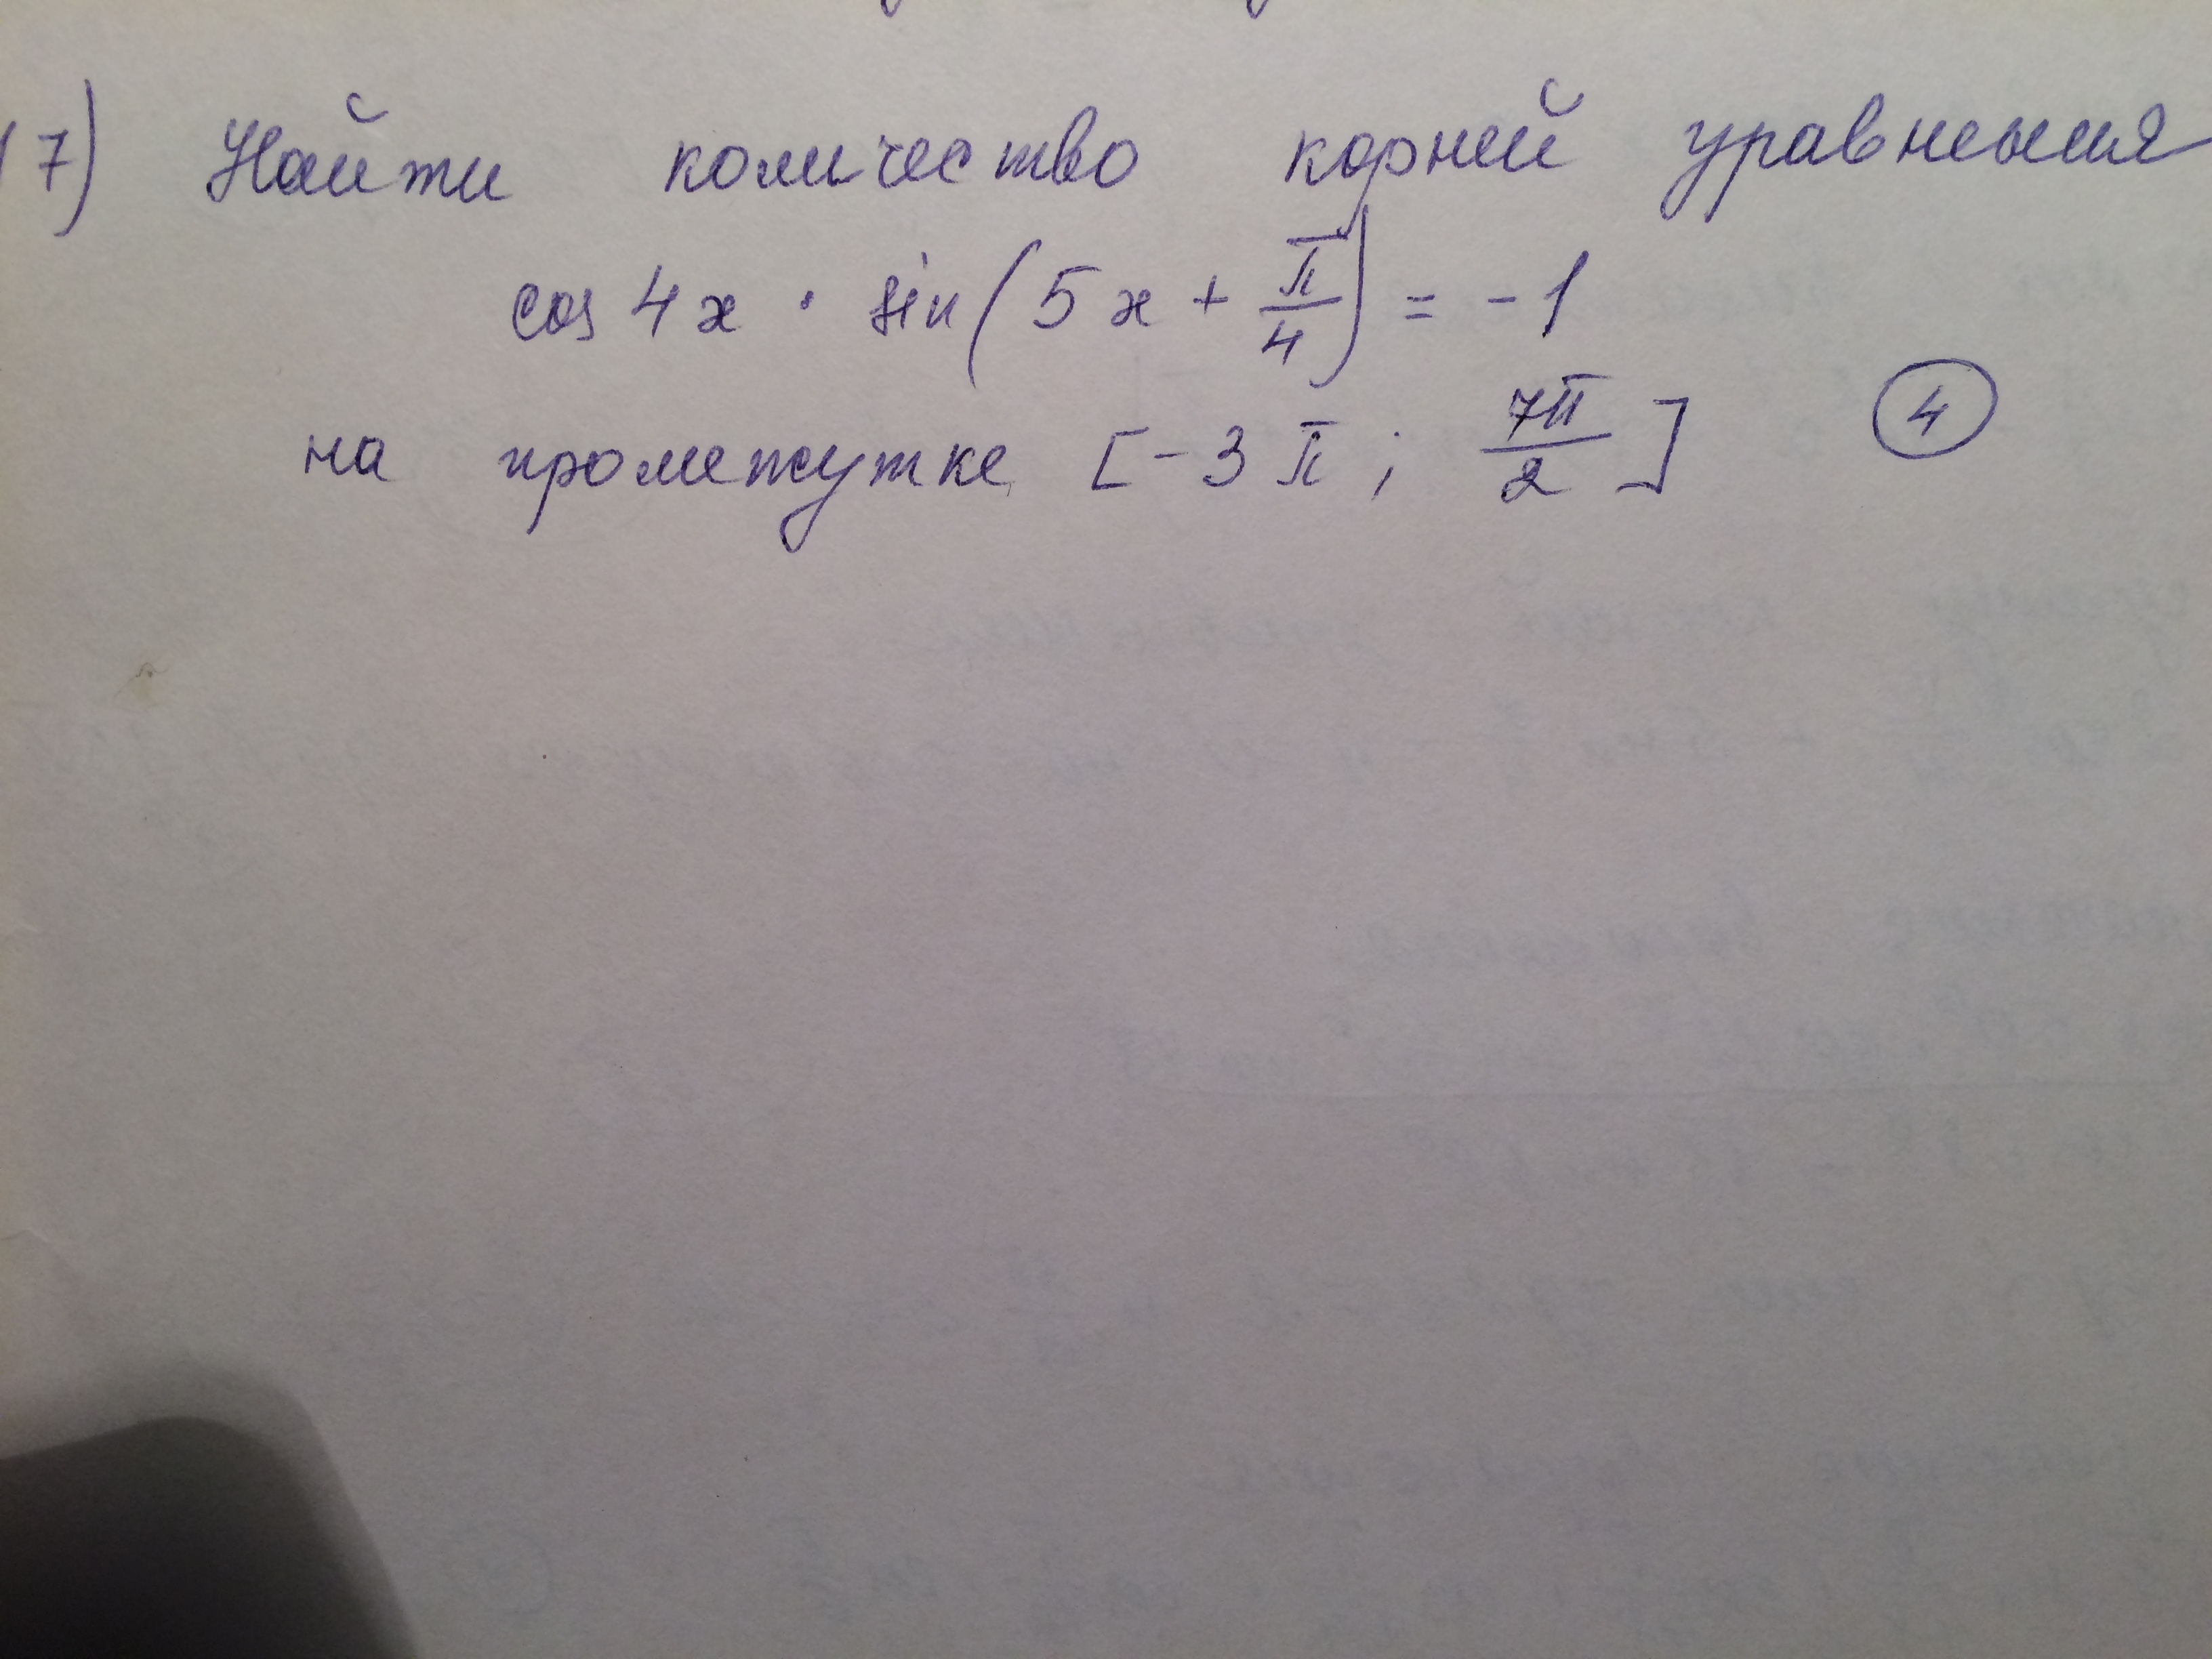 17) Найти количество корней уравнения
cos 4x · sin(5x + π/4) = -1
на промежутке [-3π; 7π/2] 4